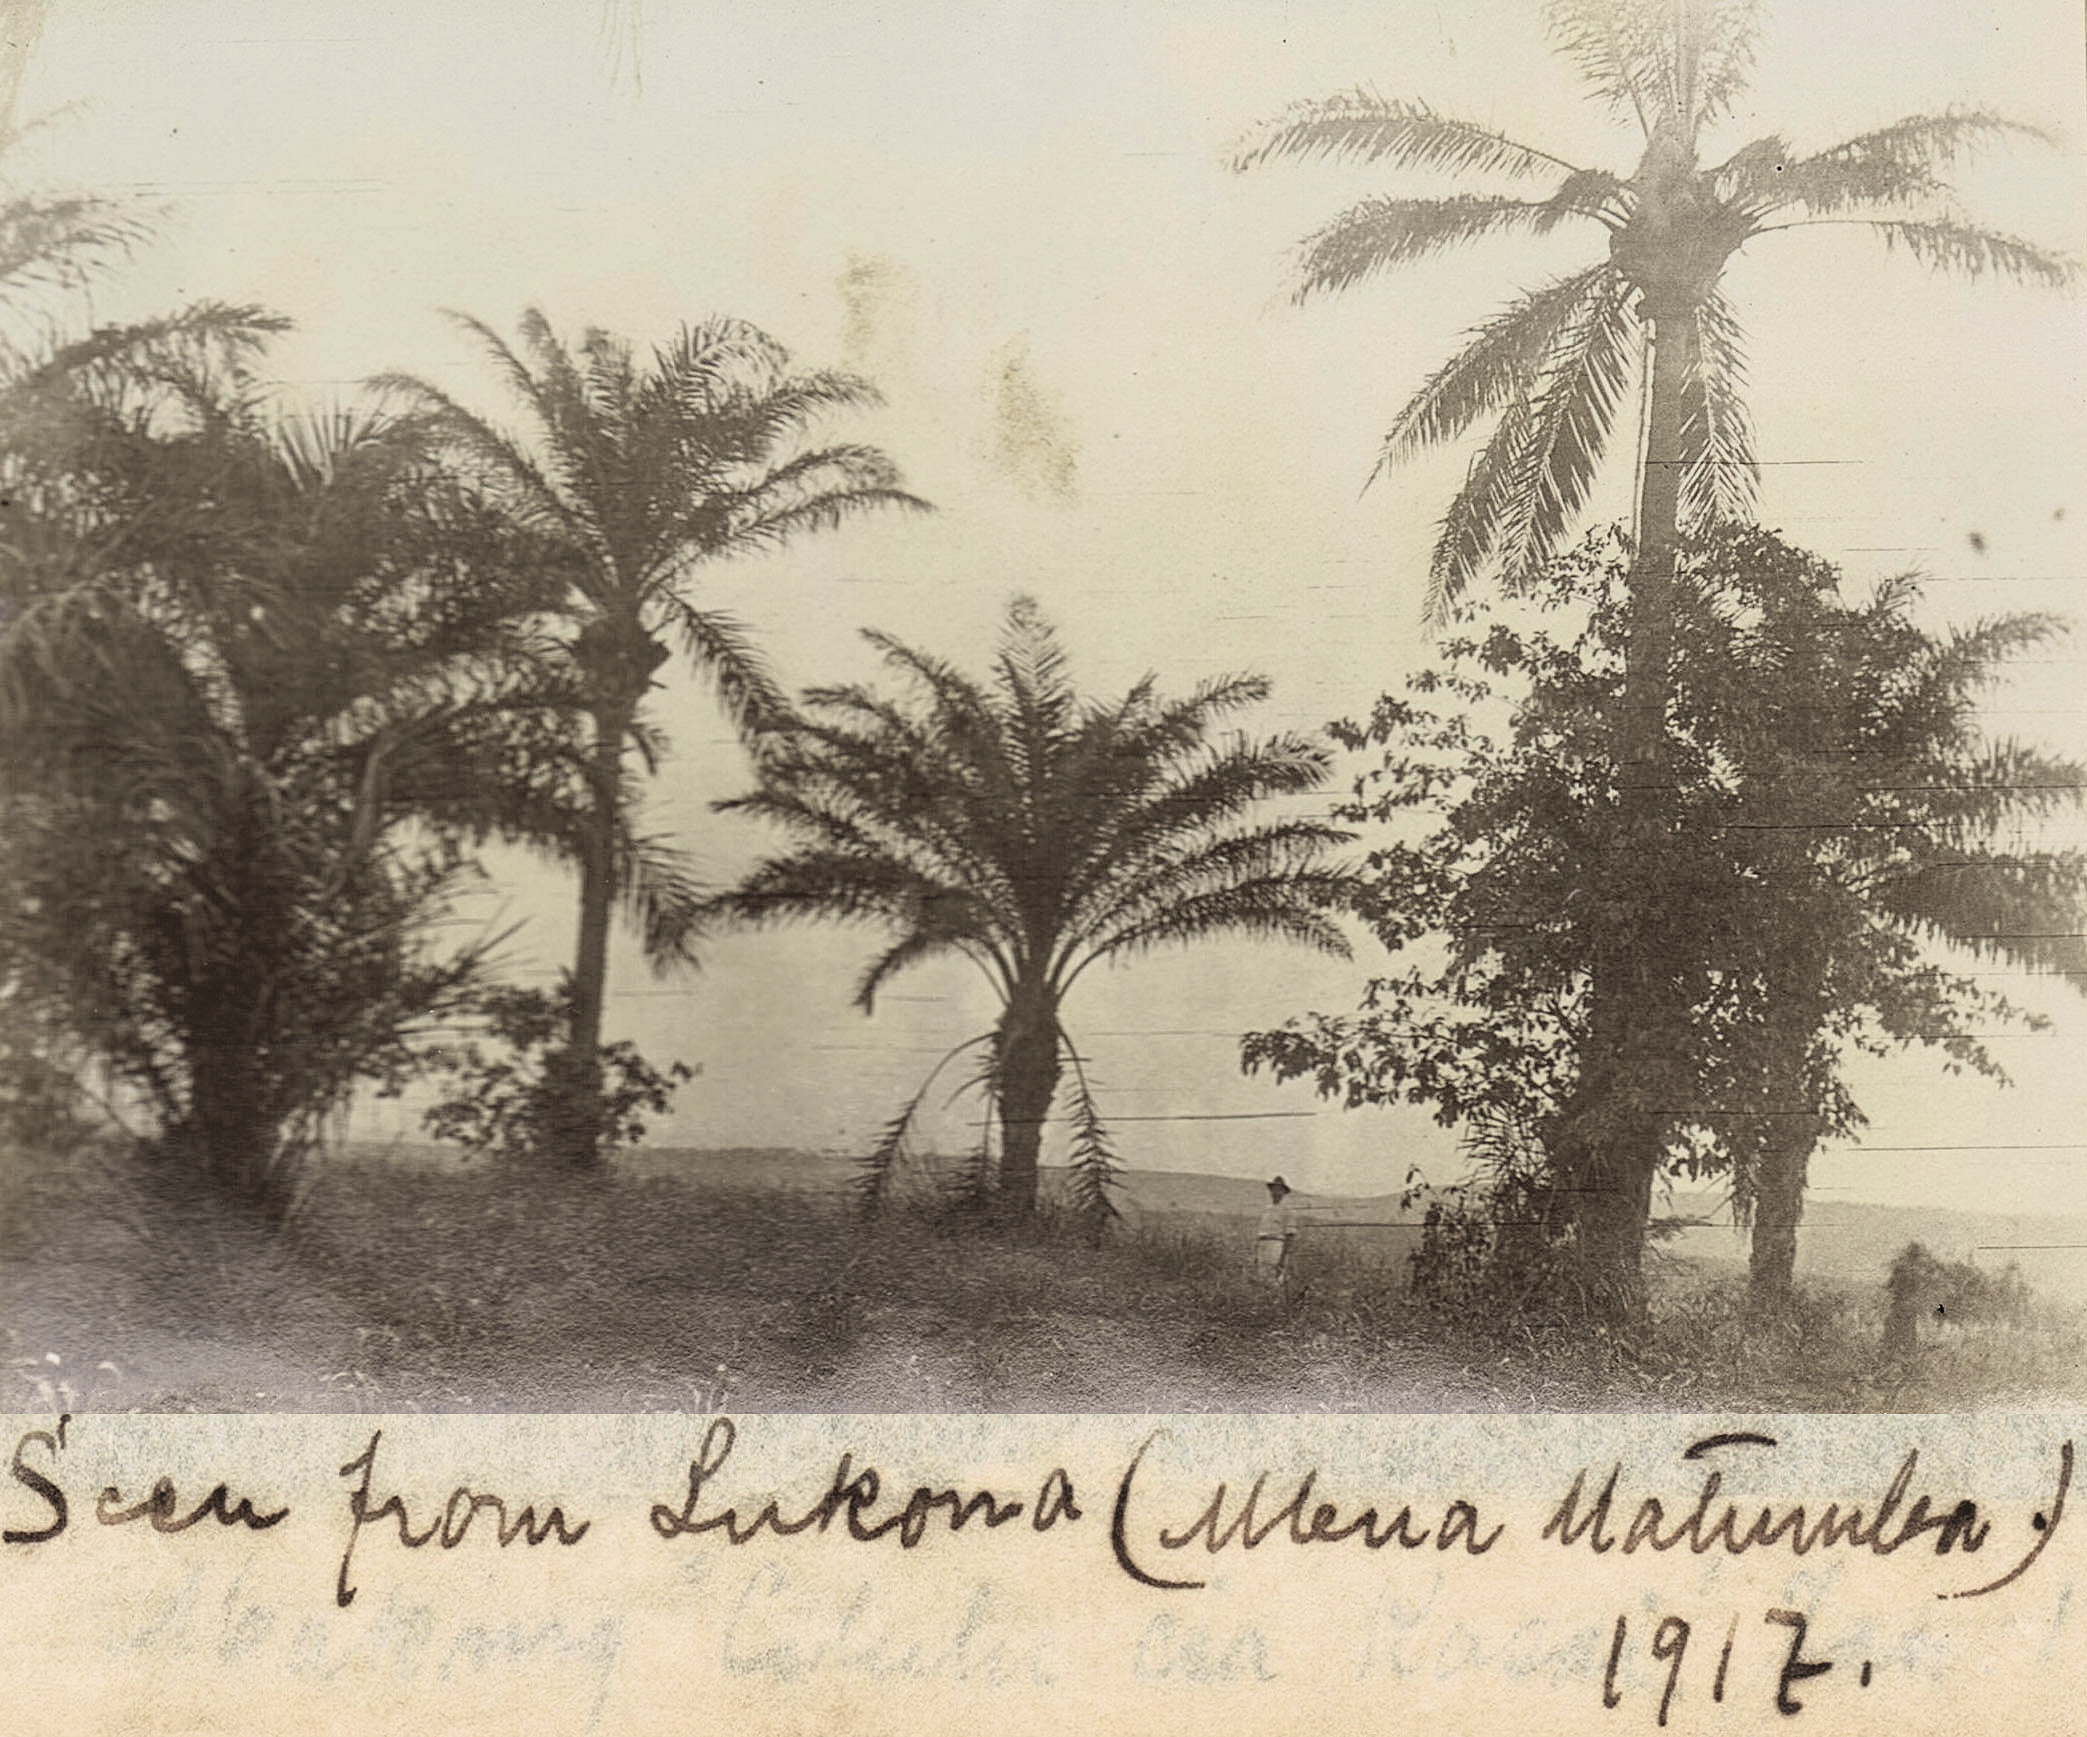 Seen from Lukona (Mena Matumba.)
1917.